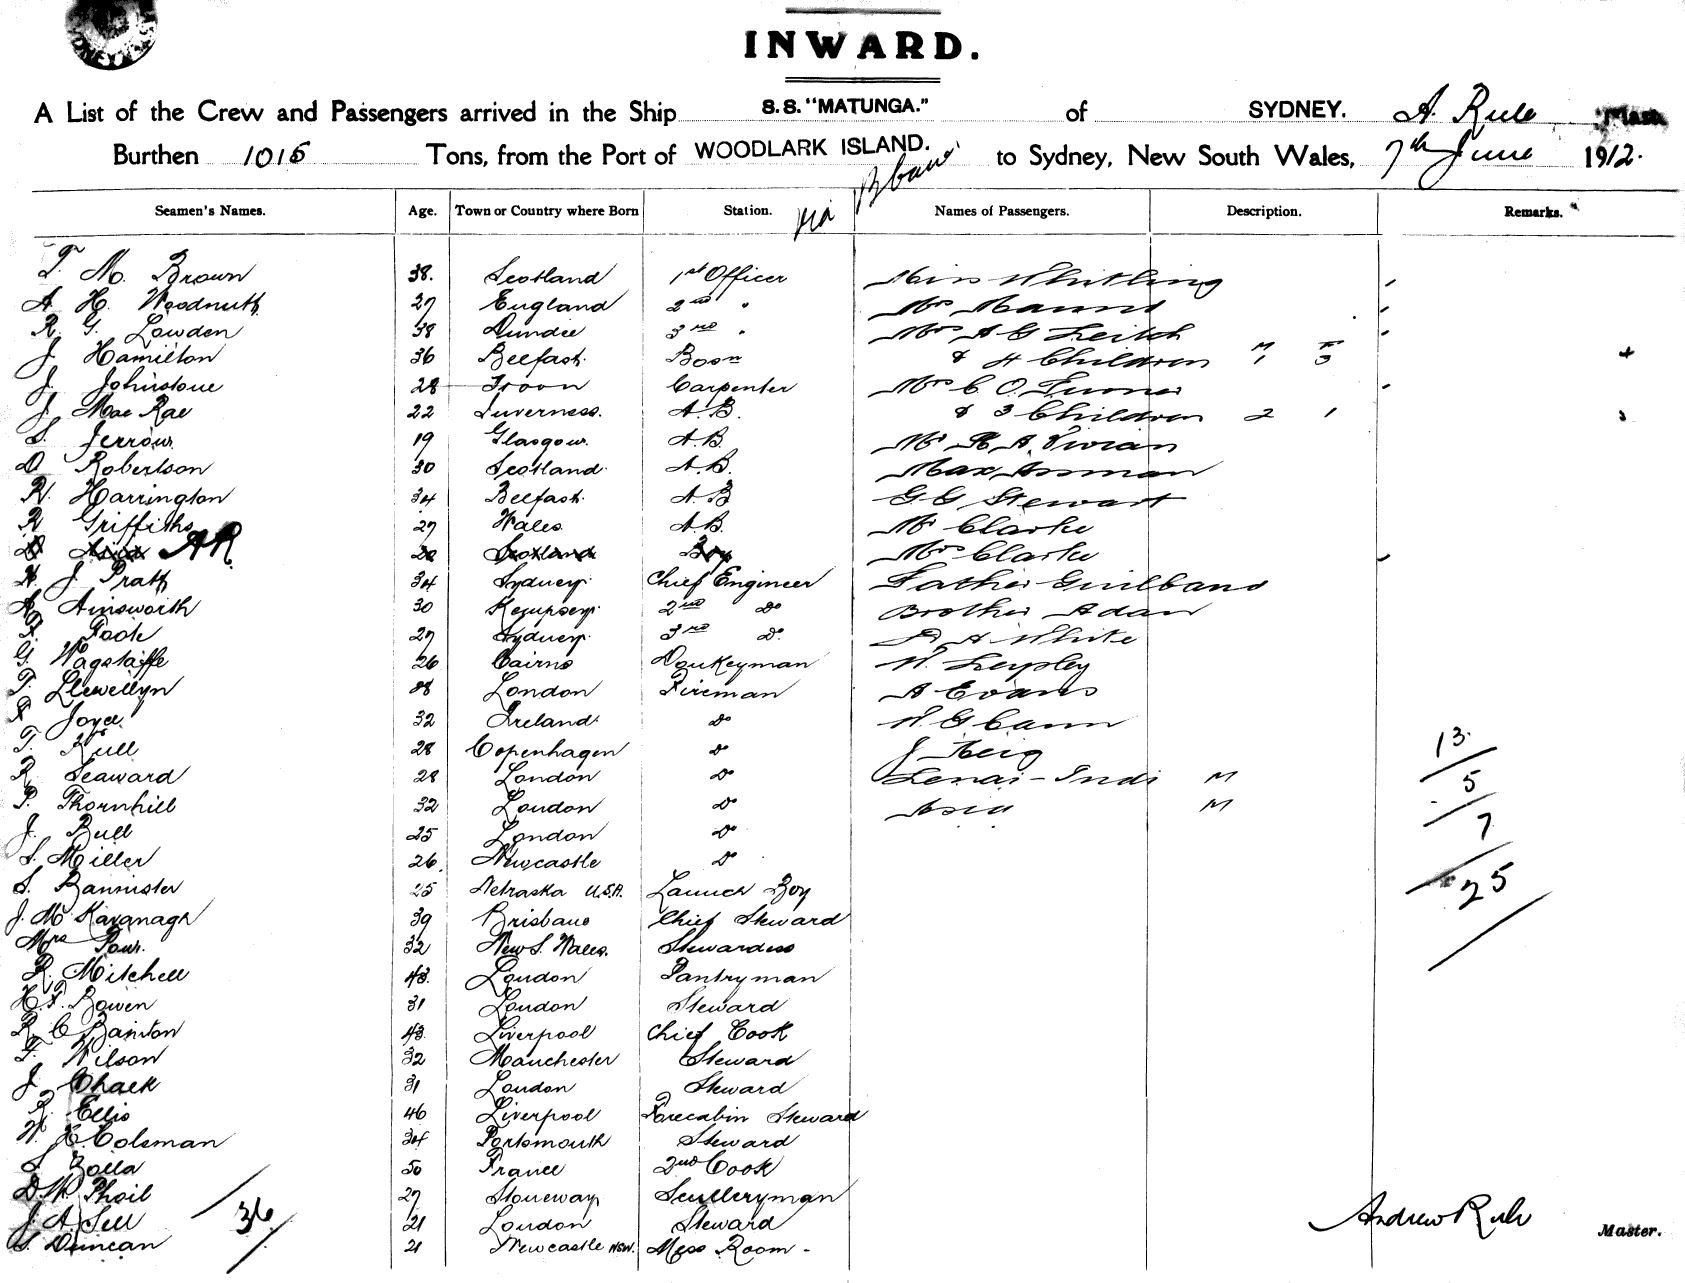 INWARD.
A List of the Crew and Passengers arrived in the Ship S.S. "MATUNGA." of SYDNEY. A. Rule
Burthen 1015 Tons, from the Port of WOODLARK ISLAND. to Sydney, New South Wales, 7th June 1912.
via Bbane
Seamen's Names. Age. Town or Country where Born Station. Names of Passengers. Description. Remarks.
T. M. Brown 38. Scotland 1st Officer Miss Whitling
A. H. Woodnutt 27 England 2nd " Mrs
R G. Lowden 38 Dundee 3rd " Mrs A G Leitch
J. Hamilton 36 Belfast Bosn & 4 Children M 1 F 3
J. Johnstone 28 Troon Carpenter Mrs C. O. Turner
J. Mac Rae 22 Inverness. A.B. & 3 Children 2 1
S. Jerrow 19 Glasgow A.B. Mr R A Vivian
D. Robertson 30 Scotland A.B. Max
H. Harrington 34 Belfast A.B G G Stewart
R Griffiths 27 Wales A.B. Mr Clarke
AR 20 Scotland Boy Mrs Clarke
H. J. Pratt 34 Sydney Chief Engineer Father Guilband
A Ainsworth 30 Kempsey 2nd Do Brother Adan
27 Sydney 3rd Do. A White
G. Wagstaffe 26 Cairns Donkeyman
T. Llewellyn 28 London Fireman A Evans
Joyce 32 Ireland Do G Cann
T. Kull 28 Copenhagen Do J
R Seaward 28 London Do Lenai - Indi M
P. Thornhill 32 London Do Asia M
J. Bull 25 London Do
S. Miller 26. Newcastle Do
S. Bannister 25 Nebraska U.S.A. Launch Boy
J. M. Kavanagh 39 Brisbane Chief Steward
Mrs 32 New S. Wales. Stewardess
R. Mitchell 43. London Pantryman
H. F. Bowen 31 London Steward
R C Bainton 43. Liverpool Chief Cook
F. Wilson 32 Manchester Steward
J. Chalk 31 London Steward
Ellis 46 Liverpool Forecabin Steward
W. H. Colsman 34 Portsmouth Steward
S Zolla 50 France 2nd Cook
D. W. Phail 27 Stoneway Sculleryman
J. A. Sell 21 London Steward
S. Duncan 21 Newcastle NSW. Mess Room -
36
13
5
7
25
Andrew Rule Master.